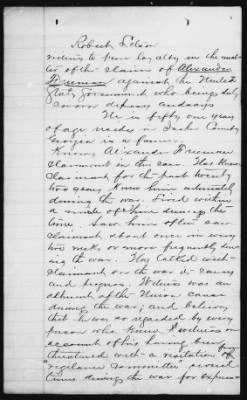 Robert
witness to prove loyalty in the mat-
ter of the claim of Alexander
Freeman against the United
States Government who being duly
sworn deposes and says
He is fifty one years
of age resides in County
Georgia is a farmer.
Knows Alexander Freeman
claimant in this case. Has known
claimant for the past twenty
two years. Knew him intimately
during the war. Lived within
a mile of him during the
time. Saw him often saw
claimant about once in every
two weeks or more frequently dur-
ing the war. They talked with
claimant on the war its causes
and progress. Witness was an
adherent of the Union cause
during the war and believes
that he was so regarded by every
person who knew witness on
account of his having been
threatened with a visitation of
vigilance committee several
times during the war for